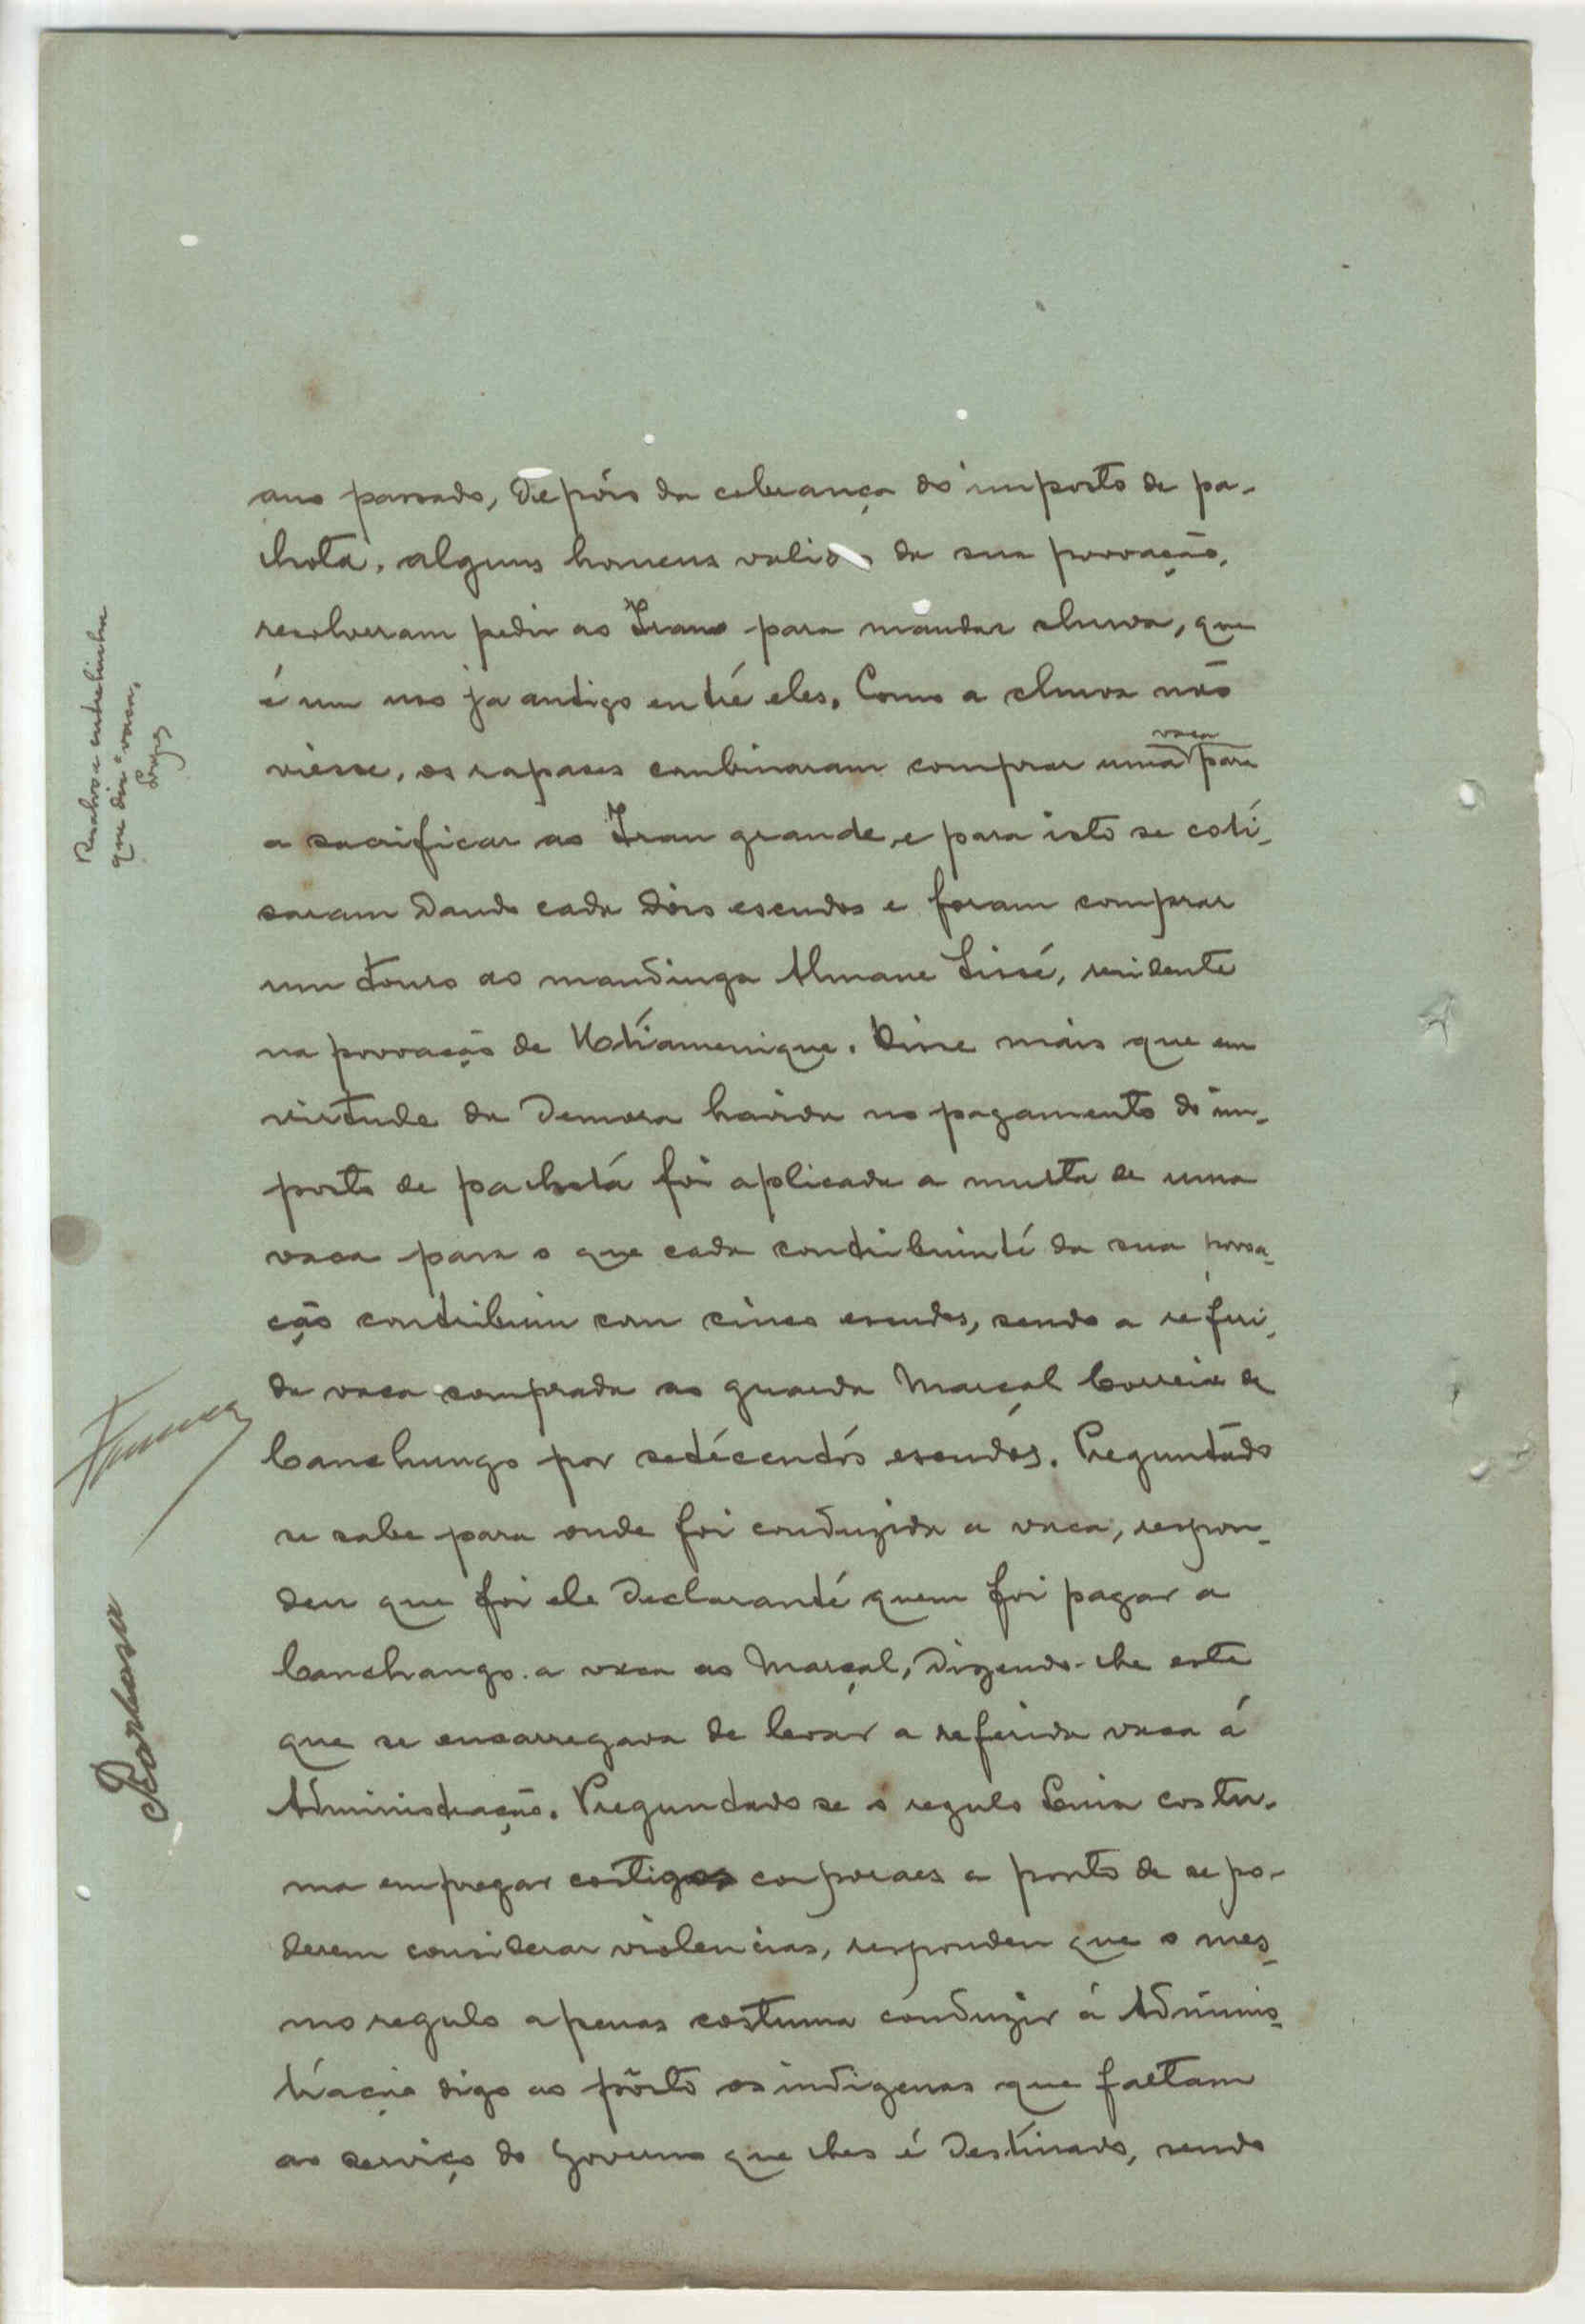 ano passado, depois da cobrança do imposto de pa-
lhota, alguns homens validos da sua povoação,
resolveram pedir ao Iran para mandar chuva, que
é um uso ja antigo entre eles. Como a chuva não
viesse, os rapases combinaram comprar uma vaca para
a sacrificar ao Iran grande, e para isto se coti-
saram dando cada dois escudos e foram comprar
um touro ao mandinga Almane Sissé, residente
na povoação de Utiamenique. Disse mais que em
virtude da demora havida no pagamento do im-
posto de palhota foi aplicada a multa de uma
vaca para o que cada contribuinte da sua povoa-
ção contribuiu com cinco escudos, sendo a referi-
da vaca comprada ao guarda Marçal Correia de
Canchungo por setecentos escudos. Preguntado
se sabe para onde foi conduzida a vaca, respon-
deu que foi ele declarante quem foi pagar a
Canchungo a vaca ao Marçal, dizendo-lhe este
que se encarregava de levar a referida vaca á
Administração. Preguntado se o regulo Cuia costu-
ma empregar castigos corporaes a ponto de se po-
derem considerar violencias, respondeu que o mes-
mo regulo apenas costuma conduzir á Adminis-
tração digo ao pôsto os indigenas que faltam
ao serviço do Governo que lhes é destinado, sendo
Resalvo a entrelinha
que diz "vaca,
Lopes
Barbosa